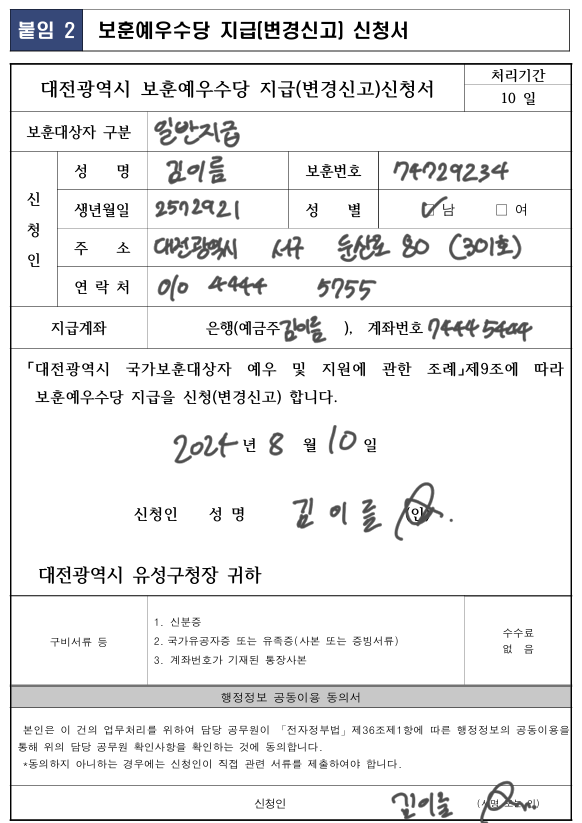 붙임 2 보훈예우수당 지급(변경신고) 신청서
대전광역시 보훈예우수당 지급(변경신고)신청서
처리기간
10 일
보훈대상자 구분 일반지급
신청인
성 명 김이름 보훈번호 74729234
생년월일 2572921 성 별 ☑ 남 □ 여
주 소 대전광역시 서구 둔산로 80 (301호)
연 락 처 010 4444 5755
지급계좌 은행(예금주 김이름 ), 계좌번호 74445444
「대전광역시 국가보훈대상자 예우 및 지원에 관한 조례」제9조에 따라
보훈예우수당 지급을 신청(변경신고) 합니다.
2024 년 8 월 10 일
신청인 성 명 김 이 름 (인)
대전광역시 유성구청장 귀하
구비서류 등
1. 신분증
2. 국가유공자증 또는 유족증(사본 또는 증빙서류)
3. 계좌번호가 기재된 통장사본
수수료
없 음
행정정보 공동이용 동의서
본인은 이 건의 업무처리를 위하여 담당 공무원이 「전자정부법」제36조제1항에 따른 행정정보의 공동이용을
통해 위의 담당 공무원 확인사항을 확인하는 것에 동의합니다.
*동의하지 아니하는 경우에는 신청인이 직접 관련 서류를 제출하여야 합니다.
신청인 김이름 (서명 또는 인)